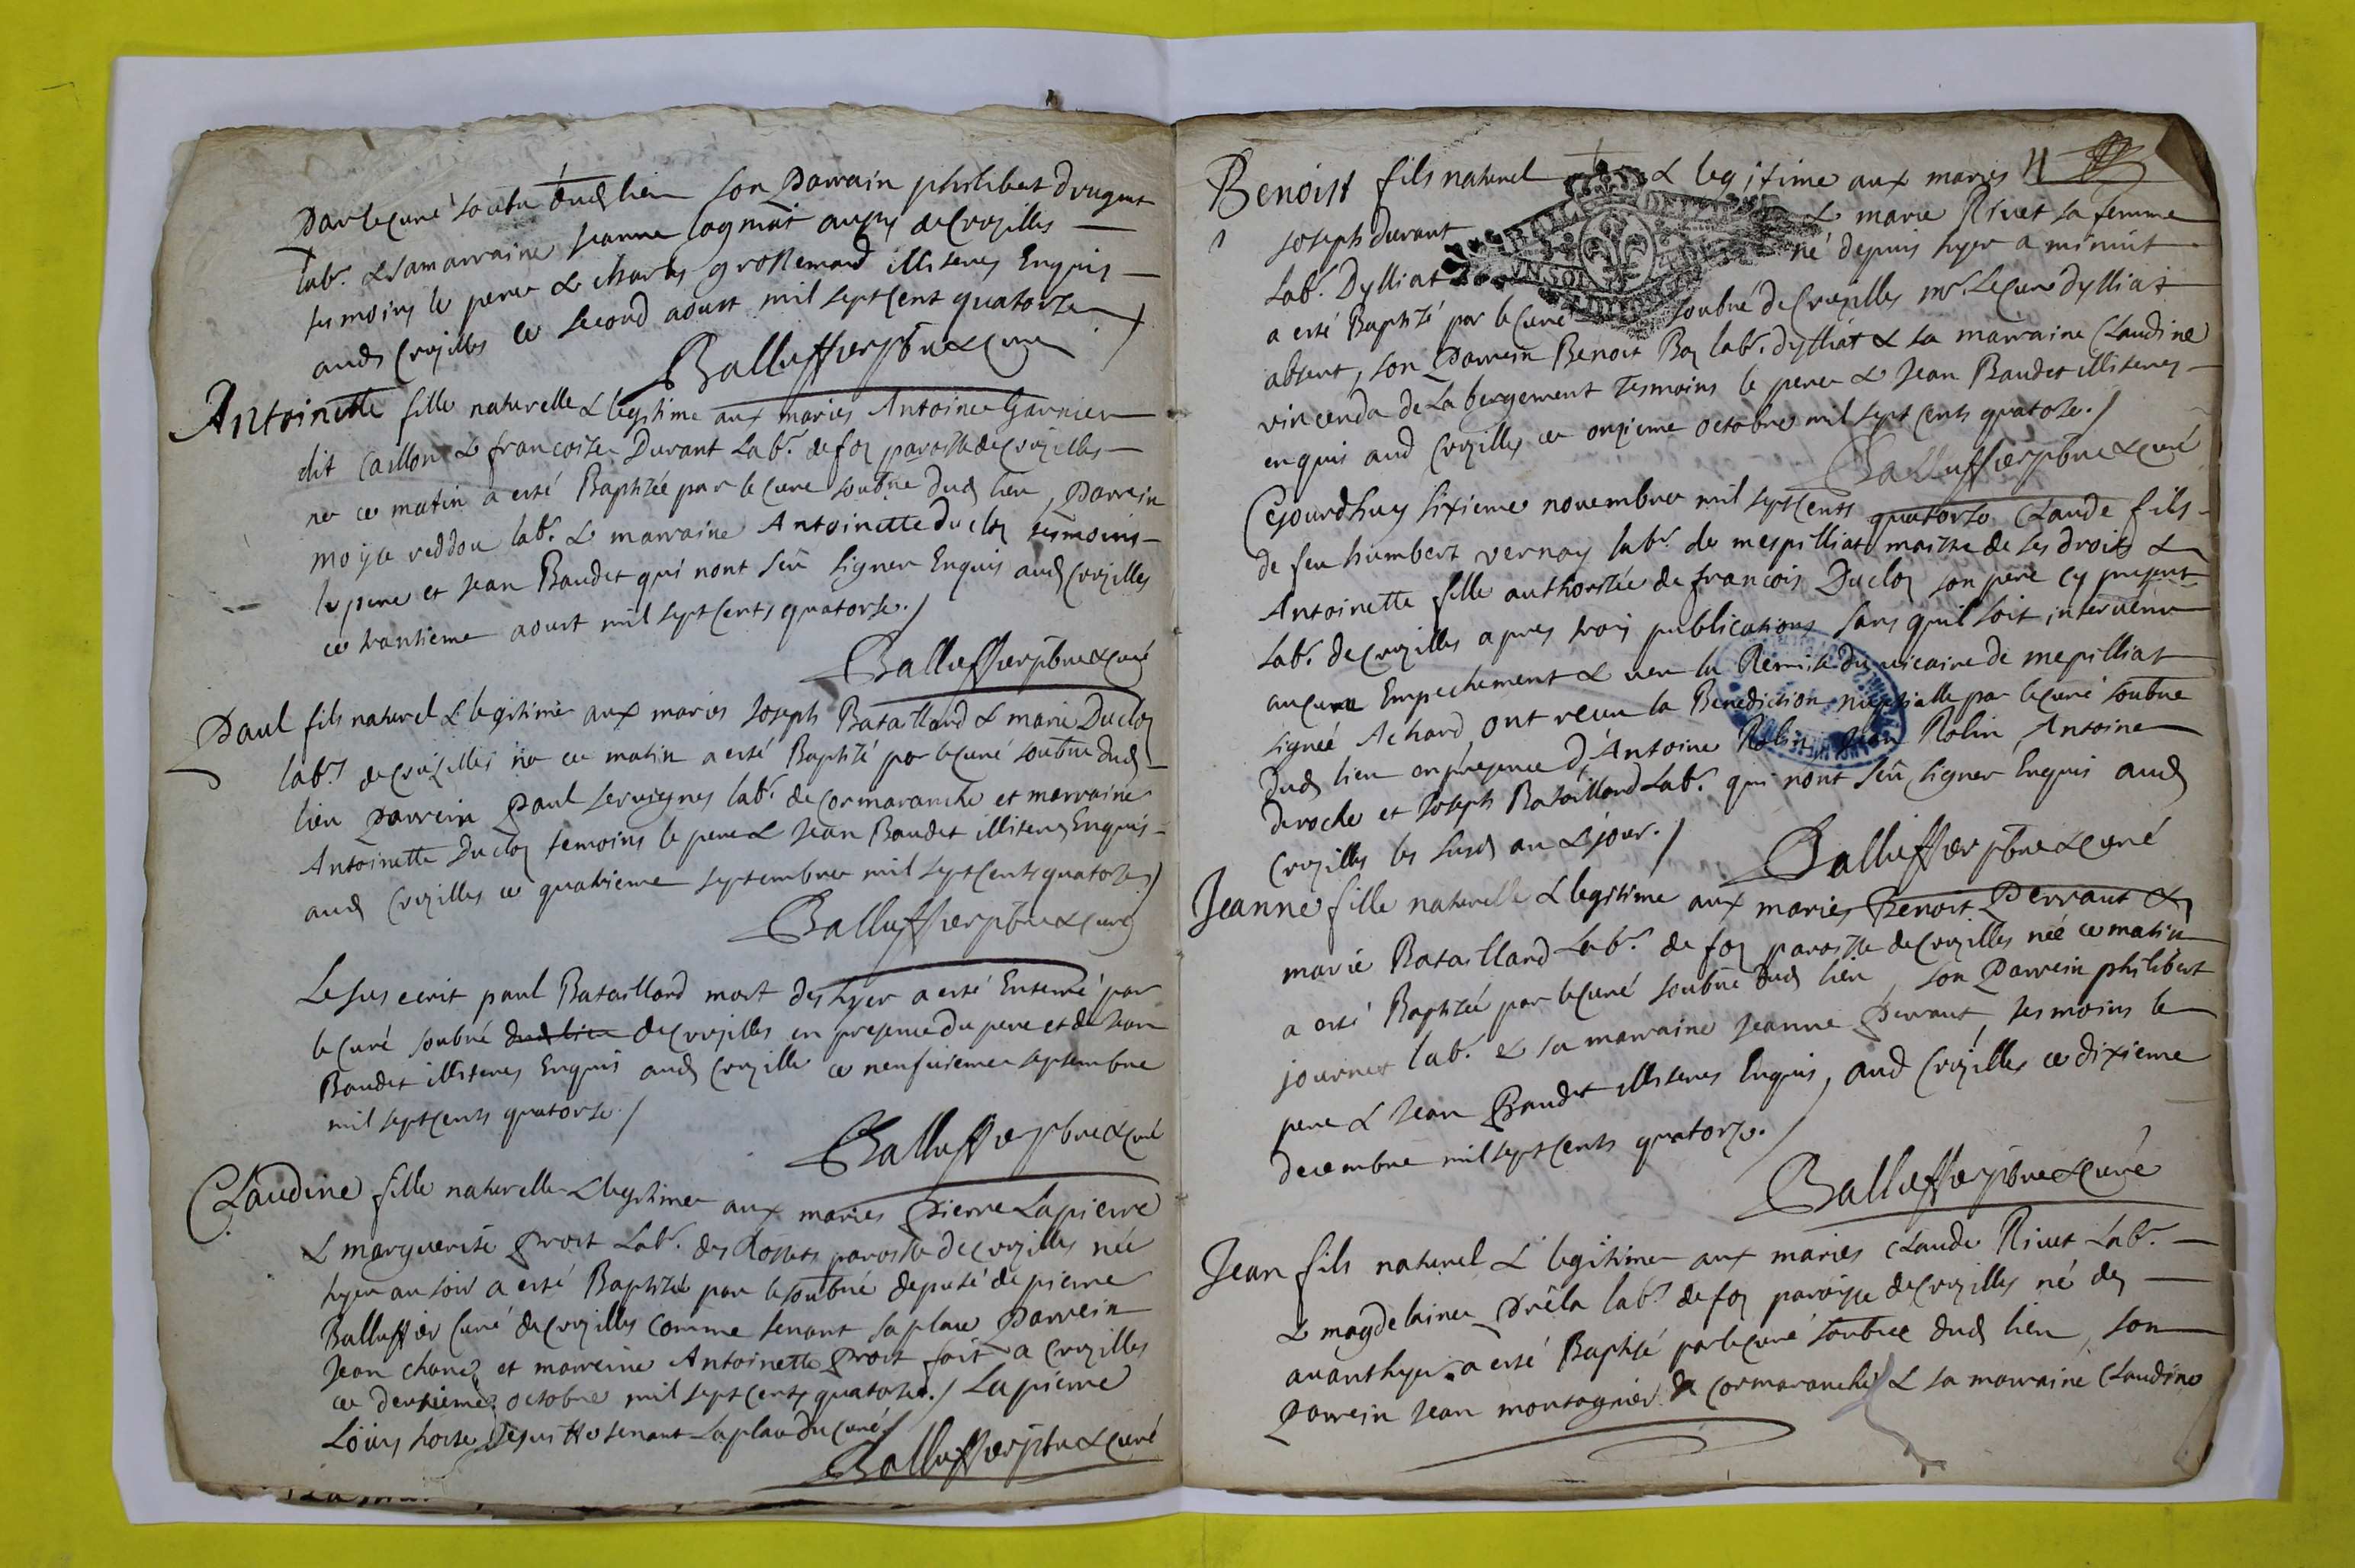 par le curé soubné dud lieu son parrain philibert drugut
lab.r & sa marraine Jeanne lagniat aussy de Crozilles
tesmoins le pere & charles grossemard illiteres Enquis
aud Crozilles ce second aoust mil sept cent quatorze
Balluffier pbre & curé
Antoinette fille naturelle & legitime aux mariés Antoine Garnier
dit Caillon & francoise Durant Lab.r de foz paroisse de Crozilles
né ce matin a esté Baptizée par le Curé soubné dud lieu, parrein
moyse reddou lab.r & marraine Antoinette Ducloz tesmoins
le pere et Jean Baudet qui nont seu signer Enquis aud Crozilles
ce trantieme aoust mil sept Cents quatorse./
Balluffier pbre & curé
Paul fils naturel & legitime aux mariés Joseph Bataillard & marie Ducloz
lab.rs de Crozilles né ce matin a esté Baptisé par le curé soubné dud
lieu parrein paul servignes lab.r de cormaranche et marraine
Antoinette Ducloz temoins le pere & Jean Baudet illiteres Enquis
aud Crozilles ce quatrieme septembre mil sept Cents quatorze/
Balluffier pbre & curé
Le sus ecrit paul Bataillard mort des hyer a esté Enterré par
le curé soubné dud lieu de Crozilles en presence du pere et de Jean
Baudet illiteres Enquis aud Crozille ce neufvieme septembre
mil sept Cents quatorse./
Balluffier pbre & curé
Claudine fille naturelle & legitime aux mariés pierre Lapierre
& marguerite prost Lab.r des Rossets paroisse de Crozilles née
hyer au soir a esté Baptizée par le soubné deputé de pierre
Balluffier Curé de Crozilles comme tenant sa place parrein
Jean chanel et marreine Antoinette prost fait a Crozilles
ce deuxieme octobre mil sept cents quatorse./ Lapierre
Louys horse Jesuitte tenant la place du curé/
Balluffier pbre & curé
Benoist fils naturel & legitime aux mariés
Joseph durant & marie Rivet sa femme
Lab.r Dylliat né depuis hyer a minuit
a esté Baptisé par le Curé soubné de Crozilles mr. le Curé dylliat
absent, son parrein Benoit Boz lab.r dylliat & sa marraine Claudine
vincenda de Labergement Tesmoins le pere & Jean Baudet illiteres
enquis aud Crozilles ce onzieme octobre mil sept Cents quatorse./
Balluffier pbre & curé
Cejourdhuy sixieme novembre mil sept Cents quatorse Claude fils
de feu humbert vernoy lab.r de mespilliat maistre de ses droits &
Antoinette fille authorisée de francois Ducloz son pere cy present
lab.r de Crozilles apres trois publications sans quil soit intervenu
aucun Empechement & veu la Remise du vicaire de mepilliat
signeé Achard, ont receu la Benediction nuptialle par le curé soubné
dud lieu en presence d'Antoine Robin, Jean Robin, Antoine
deroche et Joseph Bataillard Lab.r qui nont seu signer Enquis aud
Crozilles les susd an & jour./
Balluffier pbre & curé
Jeanne fille naturelle & legitime aux mariés Benoit perraut &
marie Bataillard Lab.rs de foz paroisse de Crozilles née ce matin
a esté Baptizée par le curé soubné dud lieu, son parrein philibert
journet lab.r & sa marraine Jeanne perraut, tesmoins le
pere & Jean Baudet illiteres Enquis, aud Crozilles ce dixieme
decembre mil sept Cents quatorze./
Balluffier pbre & curé
Jean fils naturel & legitime aux mariés Claude Rivet Lab.r
& magdelaine préla lab.rs de foz paroisse de Crozilles né des
avanthyer a esté Baptisé par le curé soubné dud lieu, son
parrein Jean montagnier de cormaranche & sa marraine Claudine